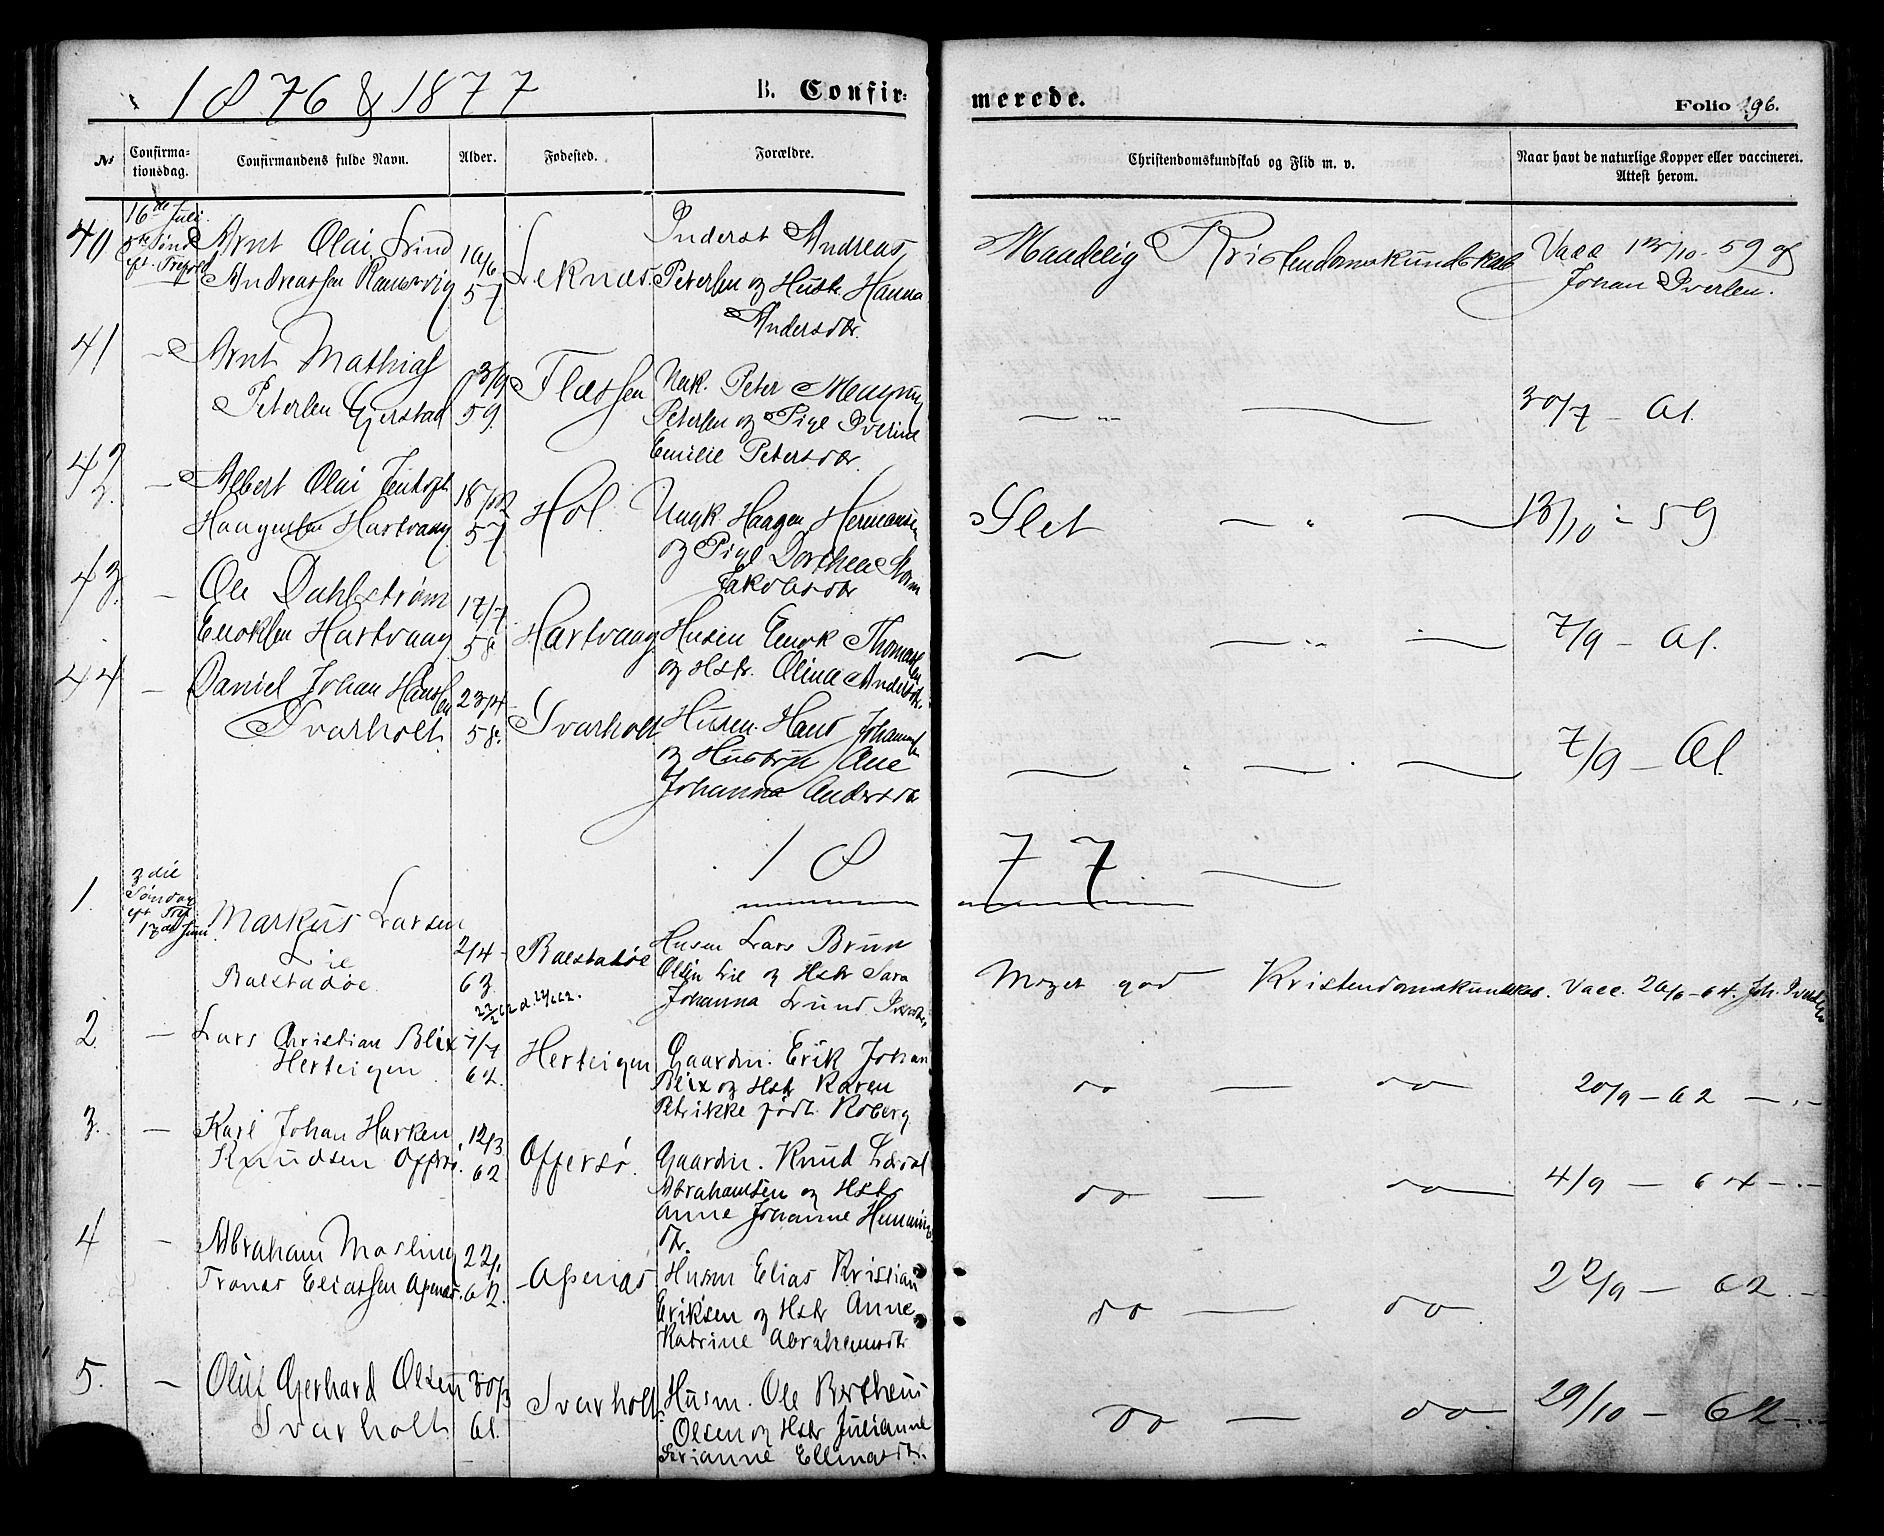 1876 & 1877
B. Confir-
merede.
Folio 196.
No
Confirma-
tionsdag.
Confirmandens fulde Navn.
Alder.
Fødested.
Forældre.
Christendomskundskab og Flid m. v.
Naar havt de naturlige Kopper eller vaccineret.
Attest herom.
40
16de Juli
5te Sønd
eft. Trefold
Arnt Olai Lind
Andreassen Ramsvig
10/6
57
Leknes.
Inderst Andreas
Petersen og Hustr. Hanna
Andersdtr.
Maadelig Kristendomskundskab
Vacc. 13/10 - 59 af
Johan Iversen.
41
-
Arnt Mathias
Petersen Gjerstad
3/9
59.
Flæsen
Unk. Peter Magnus
Petersen og Pige Iverine
Emilie Petersdtr.
— " —
30/7 - 61.
42
-
Albert Olai Jentoft
Haagensen Hartvaag
18/12
57
Hol
Ungk. Haagen Hermansen
og Pige Dorthea Storm
Jakobsdtr
Slet — " —
13/10 - 59
43.
-
Ole Dahlstrøm
Enoksen Hartvaag
17/7
58
Hartvaag
Husm Enok Thomassen
og Hstr. Olina Andersdtr.
— — " —
7/9 - 61.
44
-
Daniel Johan Hanssen
Svarholt
23/4
58.
Svarholt
Husm. Hans Johannes
og Hustru Ane
Johanna Andersdtr
— . — . —
7/9 - 61.
18 77.
1.
3die
Søndag
eft Tref
17de Juni
Markus Larsen
Lie
Balstadøe
2/4
63.
Balstadøe
Husm Lars Brun
Olsen Lie og Hstr Sara
Johanna Lund
Meget god Kristendomskundskab.
Vacc. 26/6 - 64. Joh. Iversen
2.
-
Lars Christian Blix
Herteigen
7/7
62.
Herteigen
Gaardm. Erik Johan
Blix og Hstr Karen
Petrikke født Roberg
do — do
20/9 - 62 - . -
3.
-
Karl Johan Harken
Knudsen Offersø.
12/3
62
Offersø.
Gaardm. Knud
Abrahamsen og Hstr
Anne Johanne Hemmings
dtr.
do — do
4/9 - 64 - . -
4
-
Abraham Mosling
Tronas Eliassen Apenæs.
22/1
62.
Apenæs
Husm Elias Kristian
Eriksen og Hstr Anne
Katrine Abrahamsdtr
do — do
22/9 - 62. . -
5.
-
Oluf Gerhard Olsen
Svarholt
30/3
61.
Svarholt
Husm. Ole Bertheus
Olsen og Hstr Julianne
Serianne Ellingsdtr.
do — do
29/10 - 62 - . -